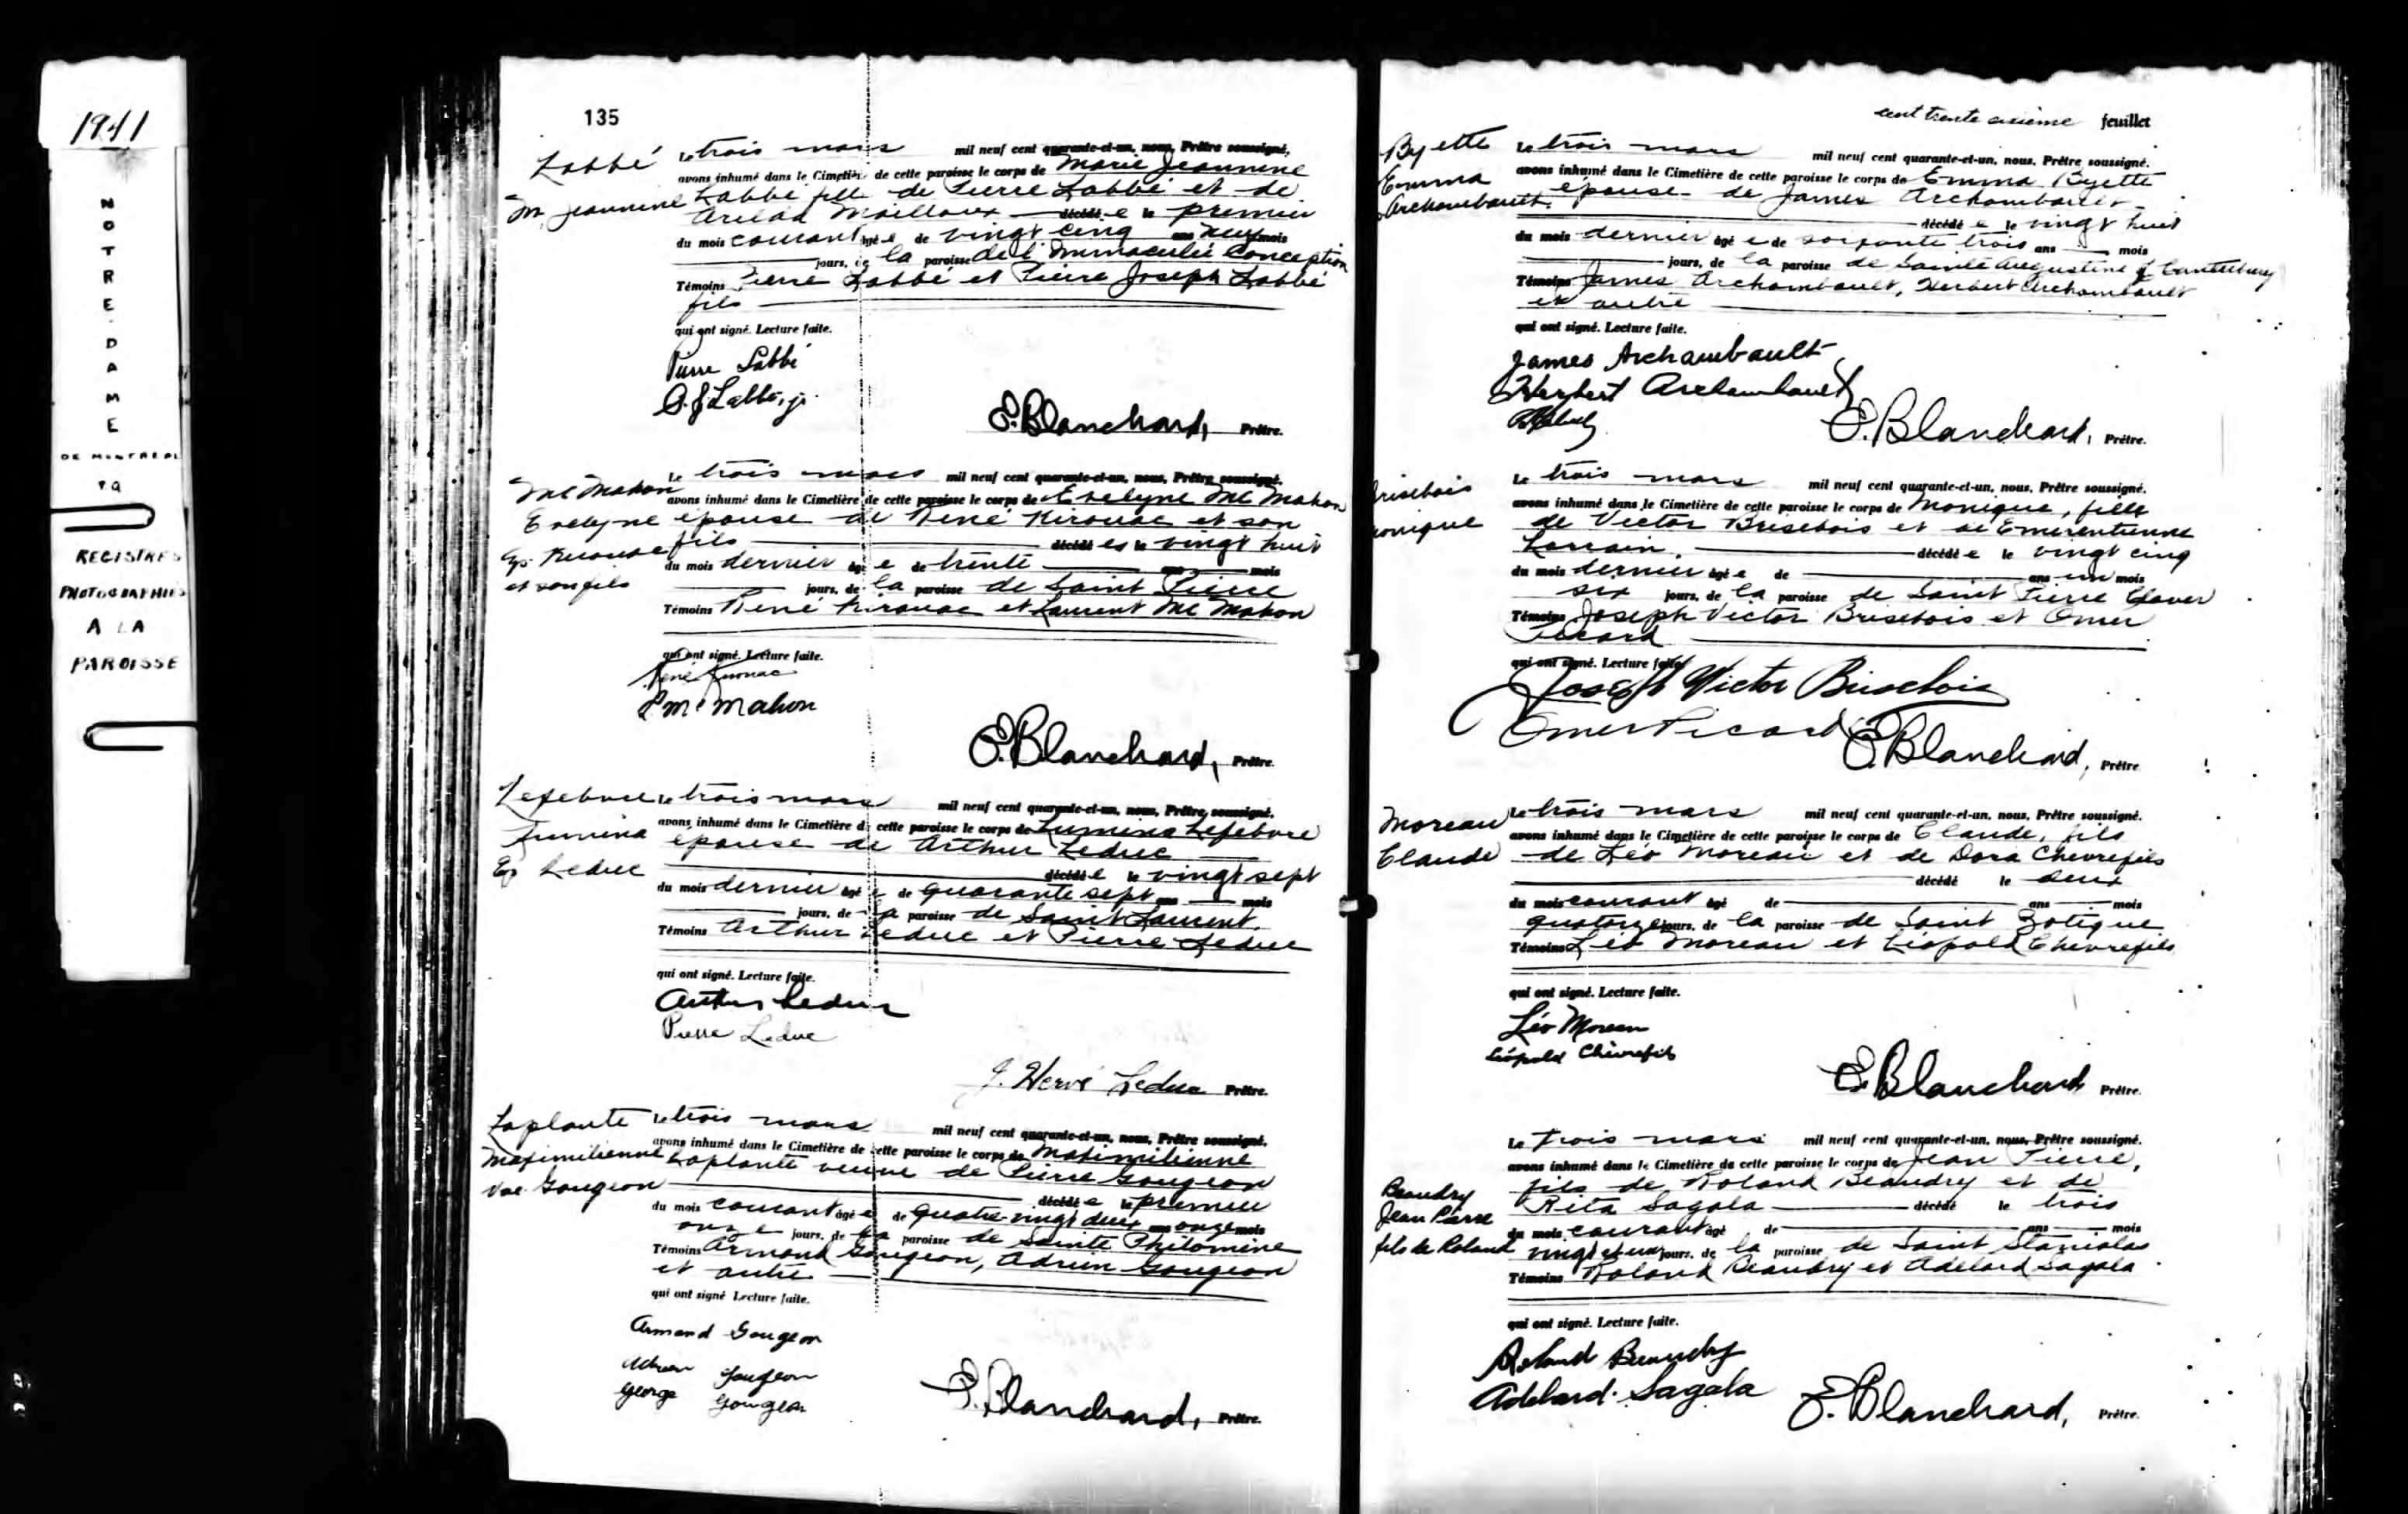 1941
NOTRE-DAME
DE MONTREAL
REGISTRES
PHOTOGRAPHIES
A LA
PAROISSE
135
Labbé
M. Jeannine
Le trois mars mil neuf cent quarante-et-un, nous, Prêtre soussigné,
avons inhumé dans le Cimetière de cette paroisse le corps de Marie Jeannine
Labbé fille de Pierre Labbé et de
Mailloux décédée le premier
du mois courant âgée de vingt cinq ans neuf mois
jours, de la paroisse de l'Immaculée Conception
Témoins Pierre Labbé et Pierre Joseph Labbé
fils
qui ont signé. Lecture faite.
Pierre Labbé
P. J. Labbé, jr.
E. Blanchard, Prêtre.
McMahon
Evelyne
Ep. Kirouac
et son fils
Le trois mars mil neuf cent quarante-et-un, nous, Prêtre soussigné,
avons inhumé dans le Cimetière de cette paroisse le corps de Evelyne McMahon
épouse de René Kirouac et son
fils décédés le vingt huit
du mois dernier âgée de trente ans mois
jours, de la paroisse de Saint Pierre
Témoins René Kirouac et Laurent McMahon
qui ont signé. Lecture faite.
René Kirouac
L McMahon
E. Blanchard, Prêtre
Lefebvre
Lumina
Ep Leduc
Le trois mars mil neuf cent quarante-et-un, nous, Prêtre, soussigné,
avons inhumé dans le Cimetière de cette paroisse le corps de Lumina Lefebvre
épouse de Arthur Leduc
décédée le vingt sept
du mois dernier âgée de quarante sept ans mois
jours, de la paroisse de Saint Laurent.
Témoins Arthur Leduc et Pierre Leduc
qui ont signé. Lecture faite.
Arthur Leduc
Pierre Leduc
J. Hervé Leduc Prêtre.
Laplante
Maximilienne
Vve Gougeon
Le trois mars mil neuf cent quarante-et-un, nous, Prêtre soussigné,
avons inhumé dans le Cimetière de cette paroisse le corps de Maximilienne
Laplante veuve de Pierre Gougeon
décédée le premier
du mois courant âgée de quatre-vingt deux ans onze mois
onze jours, de la paroisse de Sainte Philomène
Témoins Armand Gougeon, Adrien Gougeon
et autre
qui ont signé Lecture faite.
Armand Gougeon
Adrien Gougeon
George Gougeon
E. Blanchard, Prêtre.
cent trente sixième feuillet
Byette
Emma
Archambault.
Le trois mars mil neuf cent quarante-et-un, nous, Prêtre soussigné.
avons inhumé dans le Cimetière de cette paroisse le corps de Emma Byette
épouse de James Archambault
décédée le vingt huit
du mois dernier âgée de soixante trois ans mois
jours, de la paroisse de Sainte Augustine of Canterbury
Témoins James Archambault, Herbert Archambault
et autre
qui ont signé. Lecture faite.
James Archambault
Herbert Archambault
E. Blanchard, Prêtre.
risebois
onique
Le trois mars mil neuf cent quarante-et-un, nous, Prêtre soussigné.
avons inhumé dans le Cimetière de cette paroisse le corps de Monique, fille
de Victor Brisebois et de Emerentienne
Lorrain. décédée le vingt cinq
du mois dernier âgée de ans un mois
six jours, de la paroisse de Saint Pierre Claver
Témoins Joseph Victor Brisebois et Omer
Picard
qui ont signé. Lecture faite
Joseph Victor Brisebois
Omer Picard
E. Blanchard, Prêtre
Moreau
Claude
Le trois mars mil neuf cent quarante-et-un, nous, Prêtre soussigné.
avons inhumé dans le Cimetière de cette paroisse le corps de Claude, fils
de Léo Moreau et de Dora Chevrefils
décédé le deux
du mois courant âgé de ans mois
quatorze jours, de la paroisse de Saint Zotique
Témoins Léo Moreau et Léopold Chevrefils
qui ont signé. Lecture faite.
Léo Moreau
Léopold Chèvrefils
E. Blanchard Prêtre.
Beaudry
Jean Pierre
fils de Roland
Le trois mars mil neuf cent quarante-et-un, nous, Prêtre soussigné.
avons inhumé dans le Cimetière de cette paroisse le corps de Jean Pierre,
fils de Roland Beaudry et de
Rita Lagala décédé le trois
du mois courant âgé de ans mois
vingt et un jours, de la paroisse de Saint Stanislas
Témoins Roland Beaudry et Adélard Lagala
qui ont signé. Lecture faite.
Roland Beaudry
Adélard Lagala
E. Blanchard, Prêtre.